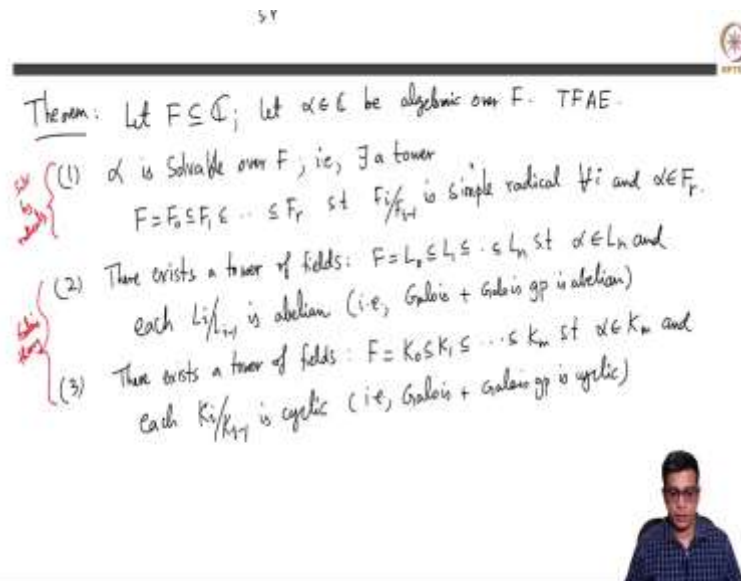 Theorem: Let F ⊆ ℂ; let α ∈ ℂ be algebraic over F. TFAE.
(1) α is Solvable over F; ie, ∃ a tower
F = F₀ ⊆ F₁ ⊆ ·· ⊆ Fᵣ st Fᵢ/Fᵢ₋₁ is simple radical ∀i and α ∈ Fᵣ.
by
(2) There exists a tower of fields: F = L₀ ⊆ L₁ ⊆ · ⊆ Lₙ st α ∈ Lₙ and
each Lᵢ/Lᵢ₋₁ is abelian (i.e, Galois + Galois gp is abelian)
(3) There exists a tower of fields: F = K₀ ⊆ K₁ ⊆ ··· ⊆ Kₘ st α ∈ Kₘ and
each Kᵢ/Kᵢ₋₁ is cyclic (ie, Galois + Galois gp is cyclic)